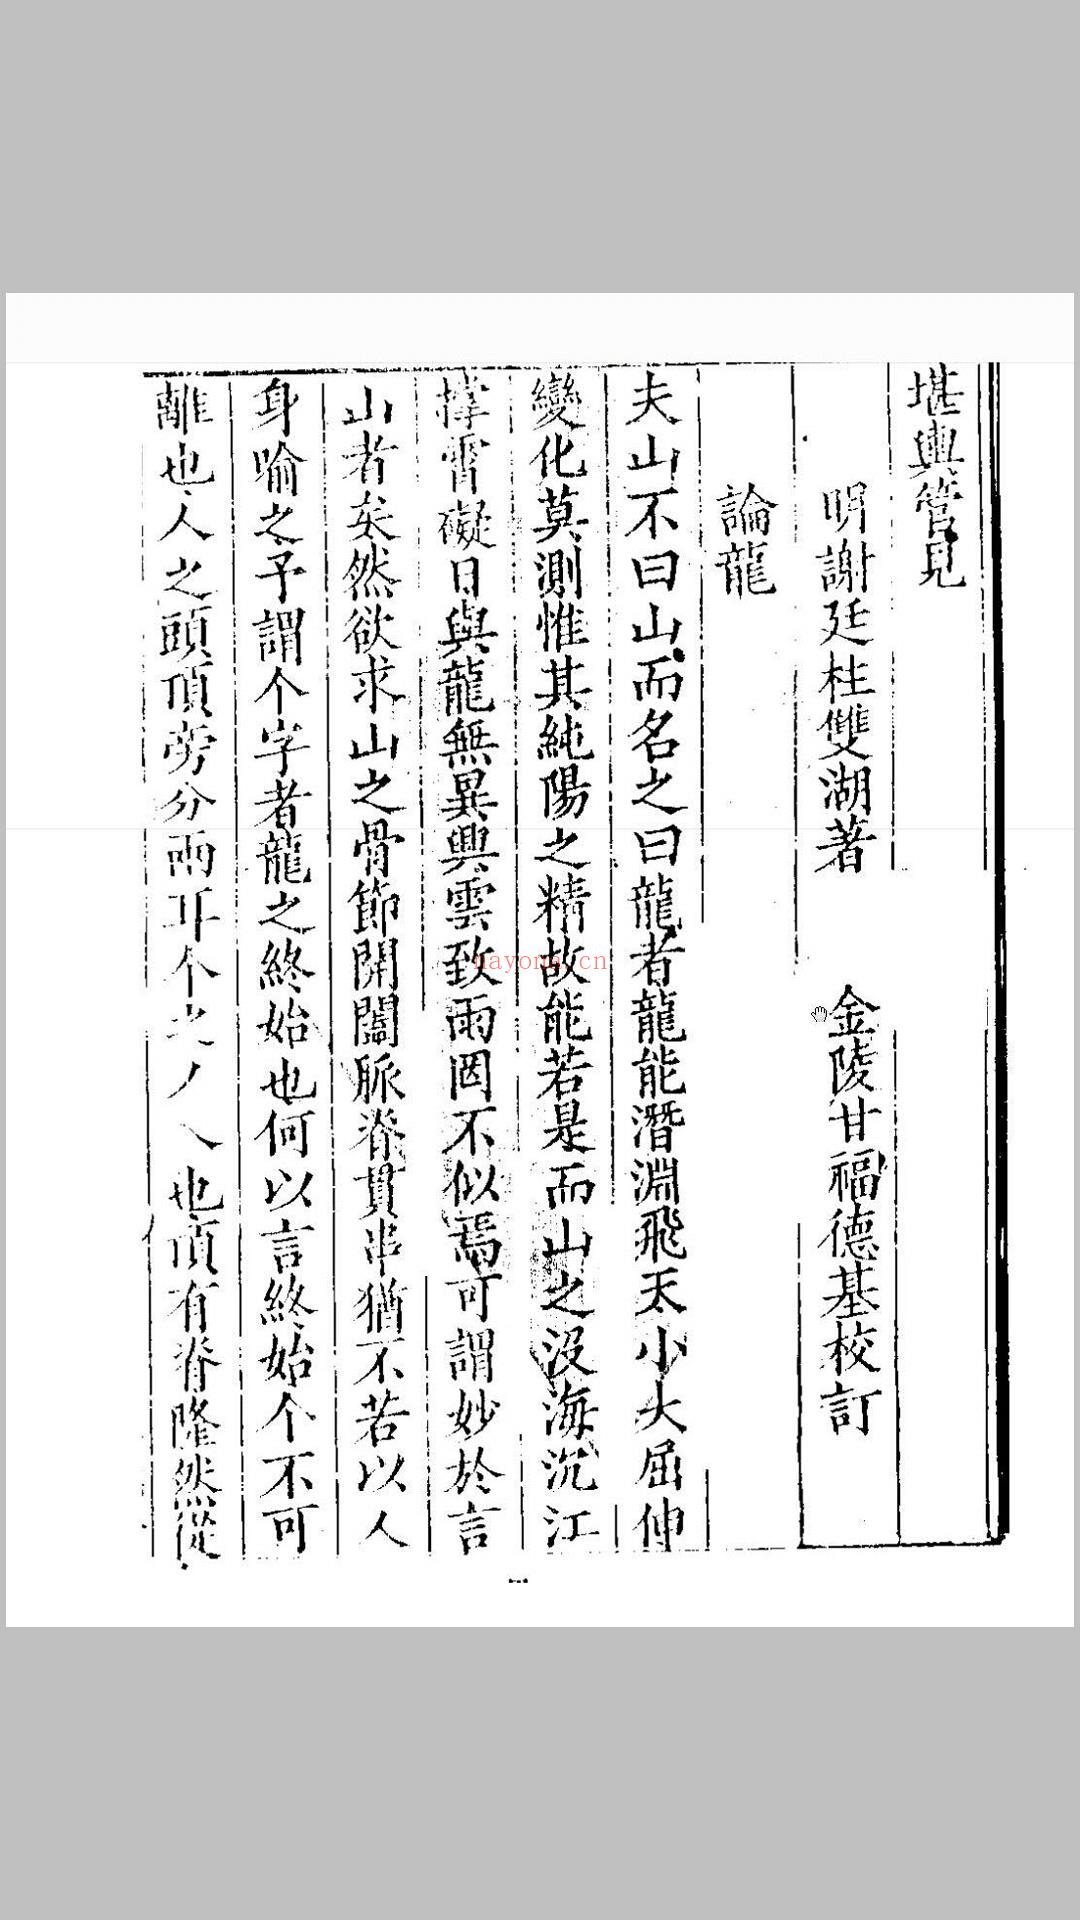 堪輿管見
明謝廷柱雙湖著　金陵甘福德基校訂
論龍
夫山不曰山而名之曰龍者龍能潛淵飛天小大屈伸
變化莫測惟其純陽之精故能若是而山之沒海沉江
撑霄礙日與龍無異興雲致雨罔不似焉可謂妙於言
山者矣然欲求山之骨節開闔脈脊貫串猶不若以人
身喻之予謂个字者龍之終始也何以言終始个不可
離也人之頭頂旁分兩耳个之丿乀也頂有脊隆然從
nayona.cn